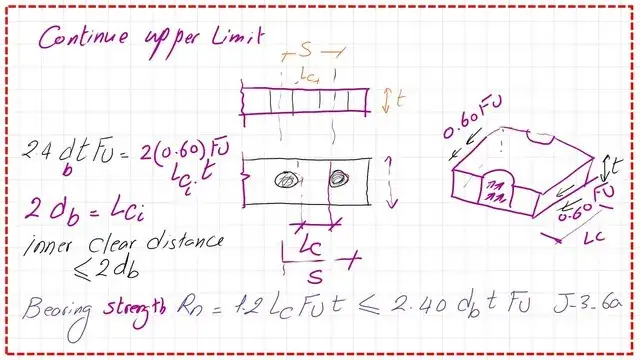 Continue upper Limit
S
Lci
t
2.4 db t FU = 2(0.60) FU
Lci t
2 db = Lci
inner clear distance
≤ 2db
Lc
S
0.60 FU
t
0.60 FU
LC
Bearing strength Rn = 1.2 Lc FU t ≤ 2.40 db t FU J-3-6a